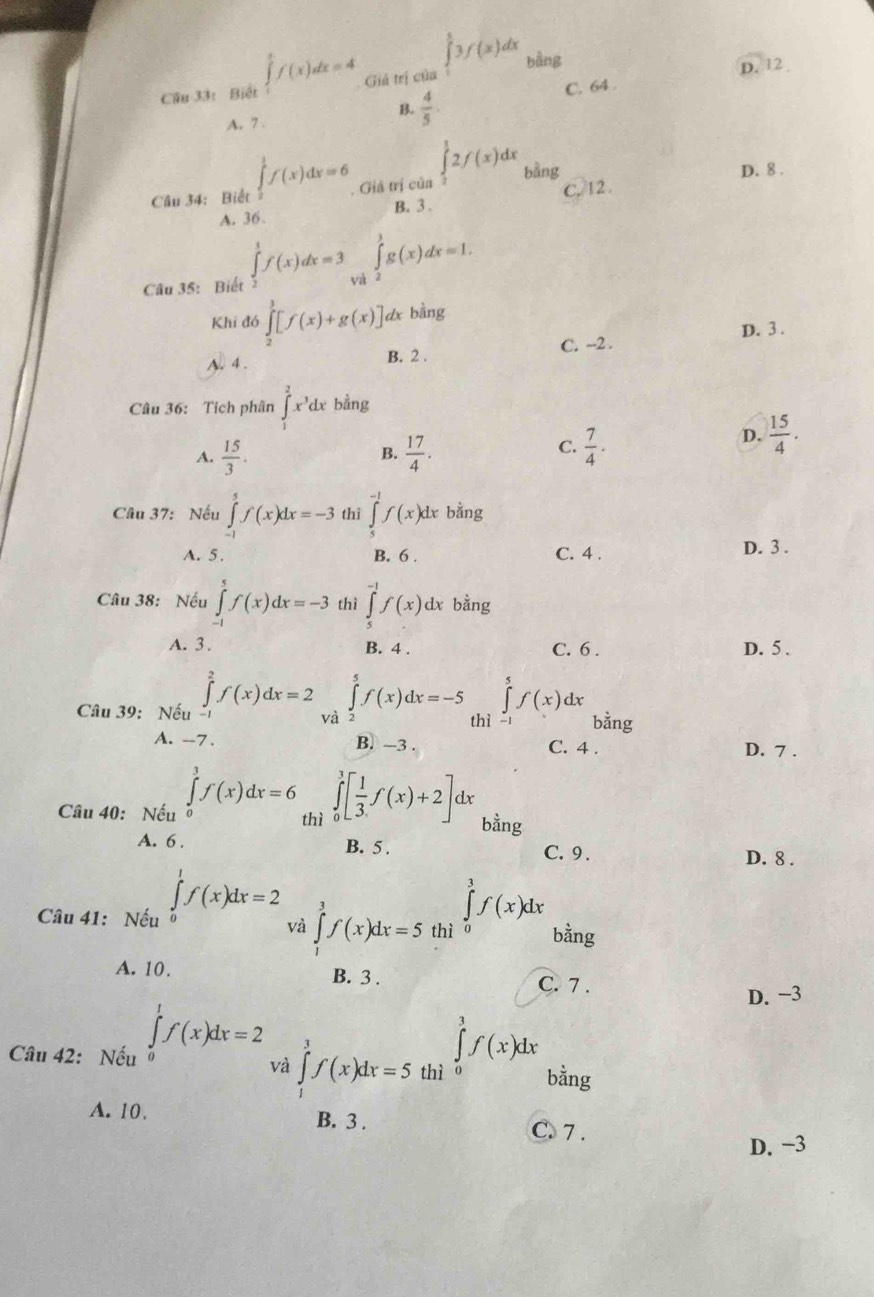 Câu 33: Biết ∫f(x)dx = 4 Giá trị của ∫3f(x)dx bằng
A. 7. B. 4/5. C. 64. D. 12.
Câu 34: Biết ∫₂³ f(x)dx = 6. Giá trị của ∫₂³ 2f(x)dx bằng
A. 36. B. 3. C. 12. D. 8.
Câu 35: Biết ∫₂³ f(x)dx = 3 và ∫₂³ g(x)dx = 1.
Khi đó ∫₂³ [f(x)+g(x)]dx bằng
A. 4. B. 2. C. −2. D. 3.
Câu 36: Tích phân ∫₁² x³dx bằng
A. 15/3. B. 17/4. C. 7/4. D. 15/4.
Câu 37: Nếu ∫₋₁⁵ f(x)dx = −3 thì ∫₅⁻¹ f(x)dx bằng
A. 5. B. 6. C. 4. D. 3.
Câu 38: Nếu ∫₋₁⁵ f(x)dx = −3 thì ∫₅⁻¹ f(x)dx bằng
A. 3. B. 4. C. 6. D. 5.
Câu 39: Nếu ∫₋₁² f(x)dx = 2 và ∫₂⁵ f(x)dx = −5 thì ∫₋₁⁵ f(x)dx bằng
A. −7. B. −3. C. 4. D. 7.
Câu 40: Nếu ∫₀³ f(x)dx = 6 thì ∫₀³ [1/3 f(x)+2]dx bằng
A. 6. B. 5. C. 9. D. 8.
Câu 41: Nếu ∫₀¹ f(x)dx = 2 và ∫₁³ f(x)dx = 5 thì ∫₀³ f(x)dx bằng
A. 10. B. 3. C. 7. D. −3
Câu 42: Nếu ∫₀¹ f(x)dx = 2 và ∫₁³ f(x)dx = 5 thì ∫₀³ f(x)dx bằng
A. 10. B. 3. C. 7. D. −3